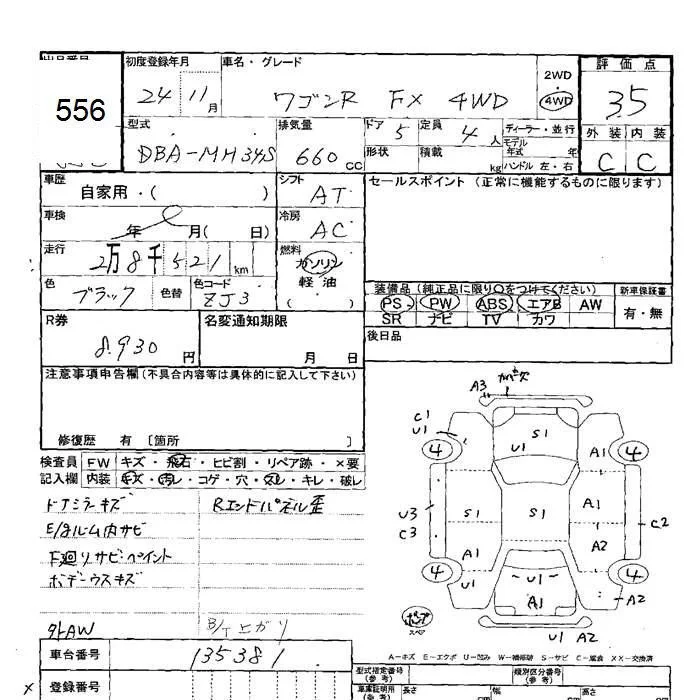 初度登録年月 車名・グレード 2WD 評価点
556 24 11月 ワゴンR FX 4WD 4WD 3.5
型式 排気量 ドア 5 定員 4人 ディーラー・並行 外装 内装
DBA-MH34S 660 CC 形状 積載 kg モデル年式 年 ハンドル 左・右 C C
車歴 シフト セールスポイント(正常に機能するものに限ります)
自家用・( ) AT
車検 冷房
年 月( 日) AC
走行 燃料
2万8千521 km ガソリン
色 色替 色コード 軽油
ブラック ZJ3 ( )
装備品(純正品に限り○をつけてください) 新車保証書
PS PW ABS エアB AW 有・無
SR ナビ TV カワ
R券 名変通知期限 後日品
8,930円 月 日
注意事項申告欄(不具合内容等は具体的に記入して下さい)
修復歴 有 〔箇所 〕
検査員 FW キズ・飛石・ヒビ割・リペア跡・×要
記入欄 内装 キズ・汚レ・コゲ・穴・スレ・キレ・破レ
ドアミラーキズ Rエンドパネル歪
E/gルーム内サビ
F廻りサビ・ペイント
ボデーウスキズ
外AW B/T上ガリ
A3 カバー欠
C1 U1 S1 U1 A1
4 4
U3 C3 S1 A1 C2
A1 A2
4 U1 U1 A1 4
A2
ポンプ
スペア U1 A2
A-キズ E-エクボ U-凹み W-補修跡 S-サビ C-腐食 XX-交換済
車台番号 135381
型式指定番号(参考) 類別区分番号(参考)
登録番号 車庫証明用(参考) 長さ cm 幅 cm 高さ cm